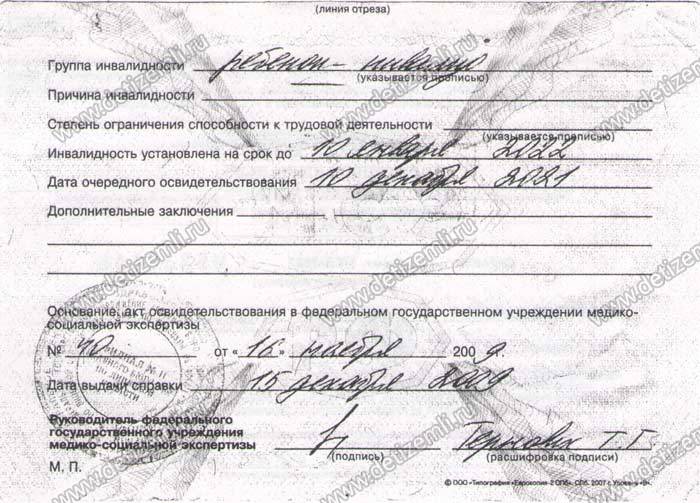 (линия отреза)
Группа инвалидности ребенок-инвалид
(указывается прописью)
Причина инвалидности
Степень ограничения способности к трудовой деятельности
(указывается прописью)
Инвалидность установлена на срок до 10 января 2022
Дата очередного освидетельствования 10 декабря 2021
Дополнительные заключения
Основание: акт освидетельствования в федеральном государственном учреждении медико-
социальной экспертизы
№ 40 от «16» ноября 2009.
Дата выдачи справки 15 декабря 2009
Руководитель федерального
государственного учреждения
медико-социальной экспертизы
(подпись)
(расшифровка подписи)
М. П.
© ООО «Типография «Еврокопия-2 СПб». СПб. 2007 г. Уровень «В».
www.detizemli.ru